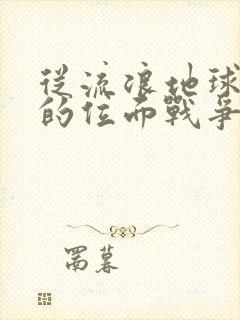 從流浪地球
的位面戰爭
罱暮